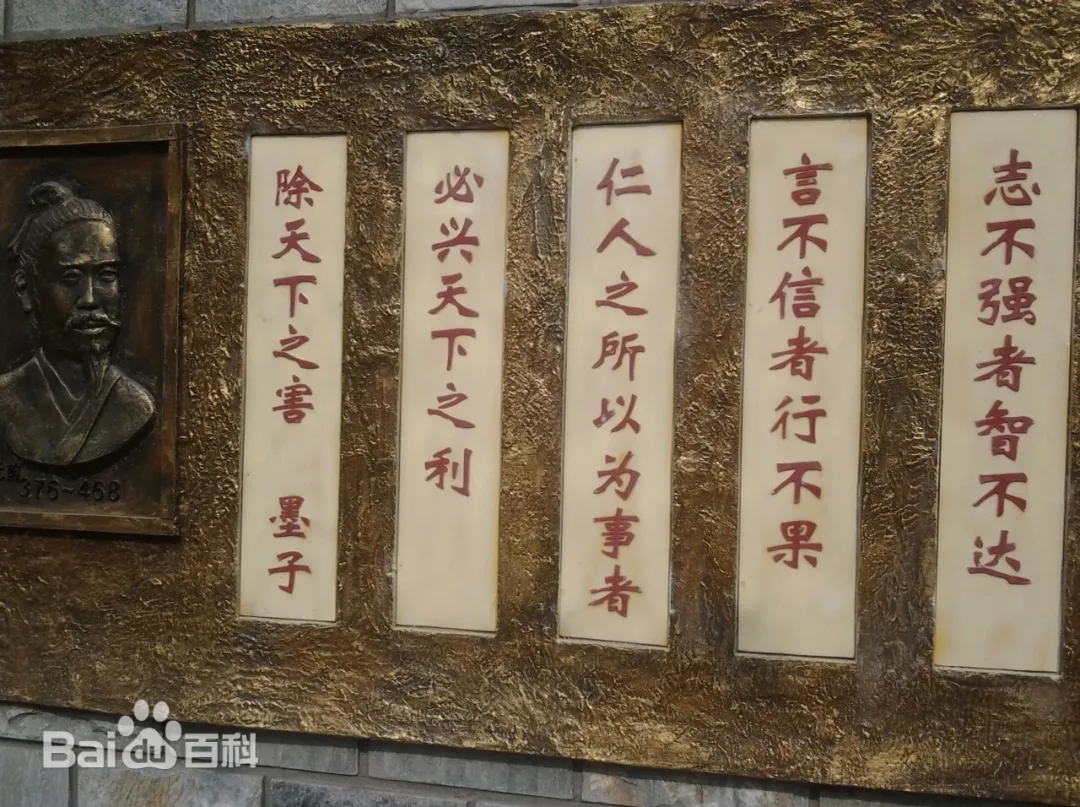 志不强者智不达
言不信者行不果
仁人之所以为事者
必兴天下之利
除天下之害 墨子
376~468
Bai百科